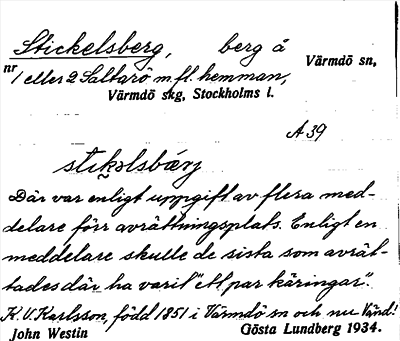 Stickelsberg, berg å Värmdö sn,
nr 1 eller 2 Saltarö m.fl. hemman,
Värmdö skg, Stockholms l.
A 39
stikəlsbærj
Där var enligt uppgift av flera med-
delare förr avrättningsplats. Enligt en
meddelare skulle de sista som avrät-
tades där ha varit "ett par käringar".
K. V. Karlsson, född 1851 i Värmdö sn och nu Vänd!
John Westin Gösta Lundberg 1934.